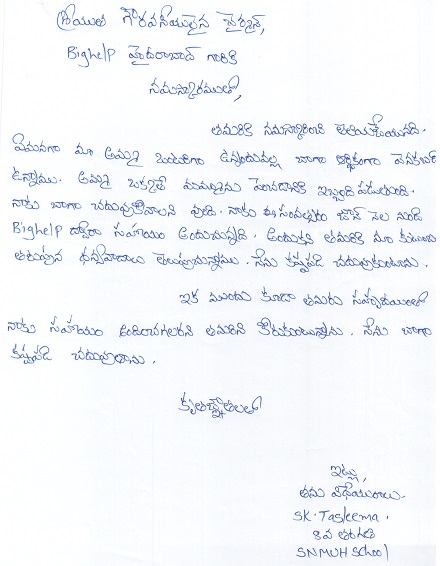 శ్రీయుత గౌరవనీయులైన ఛైర్మన్,
Bighelp హైదరాబాద్ గారికి
నమస్కారములతో,
తమరికి నమస్కారించి తెలియజేయునది.
ఏమనగా మా అమ్మ ఒంటరిగా ఉన్నందువల్ల బాగా ఆర్థికంగా వెనకబడి
ఉన్నాము. అమ్మ ఒక్కతే మమ్మల్ను పెంచడానికి ఇబ్బంది పడుతుంది.
నాకు బాగా చదువుకోవాలని వుంది. నాకు ఈ సంవత్సరం జూన్ నెల నుండి
Bighelp ద్వారా సహాయం అందుచున్నది. అందుకని తమరికి మా కుటుంబం
తరుపున ధన్యవాదాలు తెలుపుచున్నాము. నేను కష్టపడి చదువుకుంటాను.
ఇక ముందు కూడా తమరు సహృదయంతో
నాకు సహాయం అందించగలరని తమరిని కోరుకుంటున్నాను. నేను బాగా
కష్టపడి చదువుతాను.
కృతజ్ఞతలతో
ఇట్లు,
తమ విధేయురాలు.
SK. Tasleema.
8వ తరగతి
SNMUH School